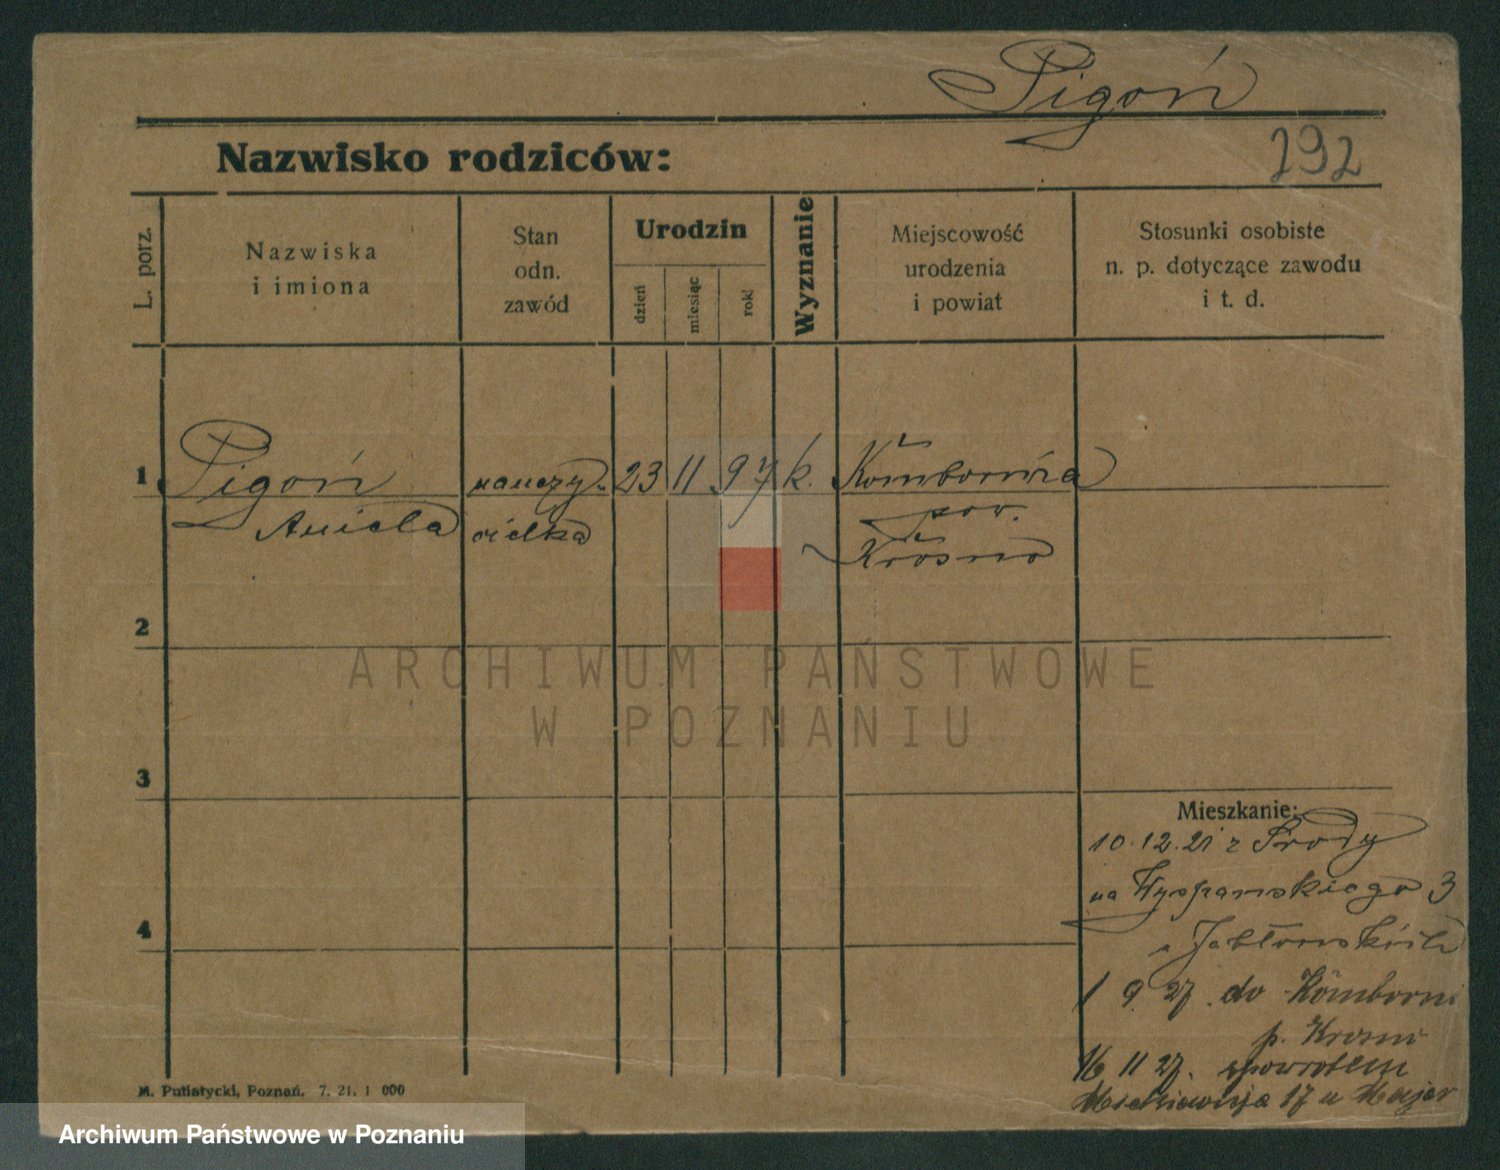 Pigoń
Nazwisko rodziców:
292
L. porz.
Nazwiska
i imiona
Stan
odn.
zawód
Urodzin
dzień
miesiąc
rok
Wyznanie
Miejscowość
urodzenia
i powiat
Stosunki osobiste
n. p. dotyczące zawodu
i t. d.
1
Pigoń
Aniela
nauczy-
cielka
23
11
97
k.
Kombornia
pow.
Krosno
2
3
4
Mieszkanie:
10.12.21 z Środy
na Wyspianskiego 3
u
1 9 27. do Komborni
p. Krosno
16 11 27. zpowrotem
17 u
M. Putiatycki, Poznań. 7. 21. 1 000
ARCHIWUM PAŃSTWOWE
W POZNANIU
Archiwum Państwowe w Poznaniu